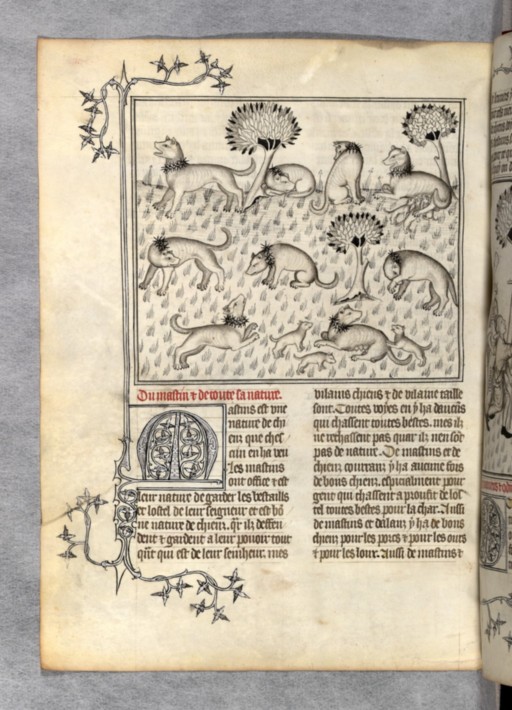 Du mastin ⁊ de toute sa nature.
Mastins est vne
nature de chi
en que chas
cun en ha veu
les mastins
ont office ⁊ est
leur nature de garder les bestaills
⁊ lostel de leur seigneur et est bõ
ne nature de chiein. qr̃ ilz deffen
dent ⁊ gardent a leur pouoir tout
qñt qui est de leur seinheur. mes
vilains chiens ⁊ de vilaine taille
sont. Toutes voyes en y ha daucũs
qui chassent toutes bestes. mes ilz
ne rechassent pas quar ilz nen sõt
pas de nature. De mastins et de
chiein courrant y ha aucune fois
de bons chiens. especialment pour
gent qui chassent a proufit de los
tel toutes bestes pour la char. Aussi
de mastins et dalain y ha de bons
chiens pour les porcs ⁊ pour les ours
⁊ pour les loux. Aussi de mastins ⁊